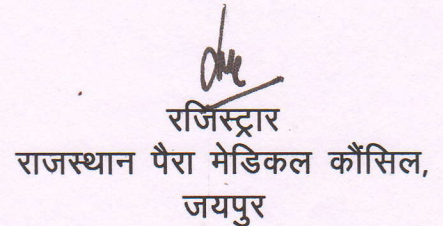 रजिस्ट्रार
राजस्थान पैरा मेडिकल कौंसिल,
जयपुर